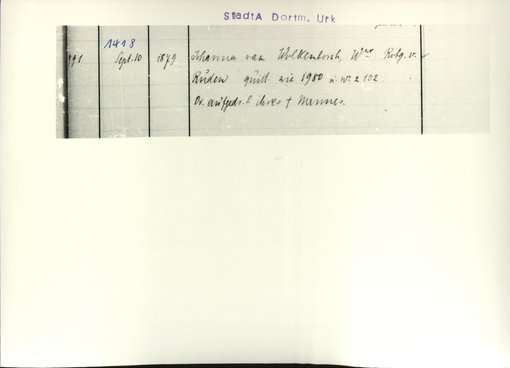 StadtA Dortm. Urk
1418
191 Sept. 10 1879 Johanna van Wolkenborch, Wwe Rotg. v.
Rüden quitt wie 1980 u. nr. 2102.
Or. aufgedr. S. ihres † Mannes.